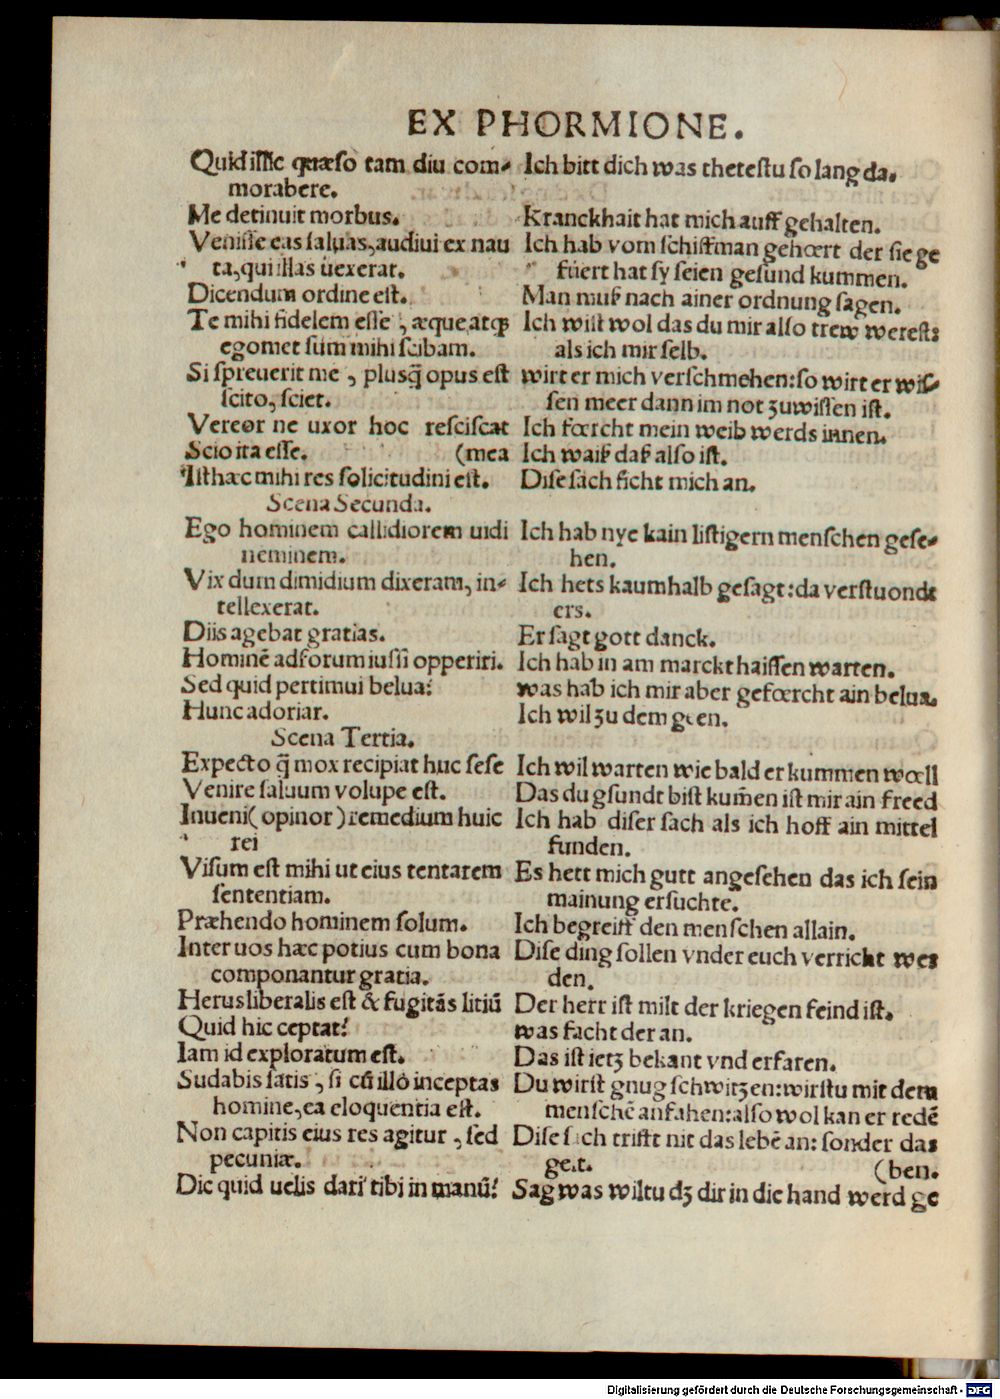 EX PHORMIONE.
Quid istic quæso tam diu com-
morabere.
Me detinuit morbus.
Venisse eas saluas, audiui ex nau
ta, qui illas uexerat.
Dicendum ordine est.
Te mihi fidelem esse, æque atqꝫ
egomet sum mihi scibam.
Si spreuerit me, plusq̃ opus est
scito, sciet.
Vereor ne uxor hoc resciscat
Scio ita esse. (mea
Isthæc mihi res solicitudini est.
Scena Secunda.
Ego hominem callidiorem uidi
neminem.
Vix dum dimidium dixeram, in-
tellexerat.
Diis agebat gratias.
Hominē ad forum iussi opperiri.
Sed quid pertimui belua?
Hunc adoriar.
Scena Tertia.
Expecto q̃ mox recipiat huc sese
Venire saluum volupe est.
Inueni (opinor) remedium huic
rei
Visum est mihi ut eius tentarem
sententiam.
Præhendo hominem solum.
Inter uos hæc potius cum bona
componantur gratia.
Herus liberalis est & fugitās litiū
Quid hic ceptat?
Iam id exploratum est.
Sudabis satis, si cū illo inceptas
homine, ea eloquentia est.
Non capitis eius res agitur, sed
pecuniæ.
Dic quid uelis dari tibi in manū?
Ich bitt dich was thetestu so lang da.
Kranckhait hat mich auff gehalten.
Ich hab vom schiffman gehœrt der sie ge
füert hat sy seien gesund kummen.
Man muß nach ainer ordnung sagen.
Ich wist wol das du mir also trew werest:
als ich mir selb.
wirt er mich verschmehen: so wirt er wis-
sen meer dann im not zuwissen ist.
Ich fœrcht mein weib werds innen.
Ich waiß daß also ist.
Dise sach ficht mich an.
Ich hab nye kain listigern menschen gese-
hen.
Ich hets kaum halb gesagt: da verstuondt
ers.
Er sagt gott danck.
Ich hab in am marckt haissen warten.
was hab ich mir aber gefœrcht ain belua.
Ich wil zu dem geen.
Ich wil warten wie bald er kummen wœll
Das du gsundt bist kum̄en ist mir ain freed
Ich hab diser sach als ich hoff ain mittel
funden.
Es hett mich gutt angesehen das ich sein
mainung ersuchte.
Ich begreiff den menschen allain.
Dise ding sollen vnder euch verricht wer
den.
Der herr ist milt der kriegen feind ist.
was facht der an.
Das ist ietz bekant vnd erfaren.
Du wirst gnug schwitzen: wirstu mit dem
menschē anfahen: also wol kan er redē
Dise sach trifft nit das lebē an: sonder das
gelt. (ben.
Sag was wiltu dz dir in die hand werd ge
Digitalisierung gefördert durch die Deutsche Forschungsgemeinschaft - DFG